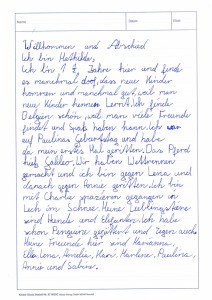 Willkommen und Abschied
Ich bin Mathilde,
Ich bin 1 ½ Jahre hier und finde
es manchmal doof, dass neue Kinder
kommen und manchmal gut, weil man
neue Kinder kennen Lernt. Ich finde
Belgien schön, weil man viele Freunde
findet und Spaß haben kann. Ich war
auf Paulinas Geburtstag und habe
da mein erstes Mal geritten. Das Pferd
hieß Galileo. Wir haben Wettrennen
gemacht und ich bin gegen Lena und
danach gegen Annie geritten. Ich bin
mit Charlie spazieren gegangen in
Lech im Schnee. Meine Lieblingstiere
sind Hunde und Elefanten. Ich habe
schon Pinguine gefüttert und
Meine Freunde hier sind Marianne,
Ella, Lena, Amelie, Kari, Marlene, Paulina,
Annie und Sabine.